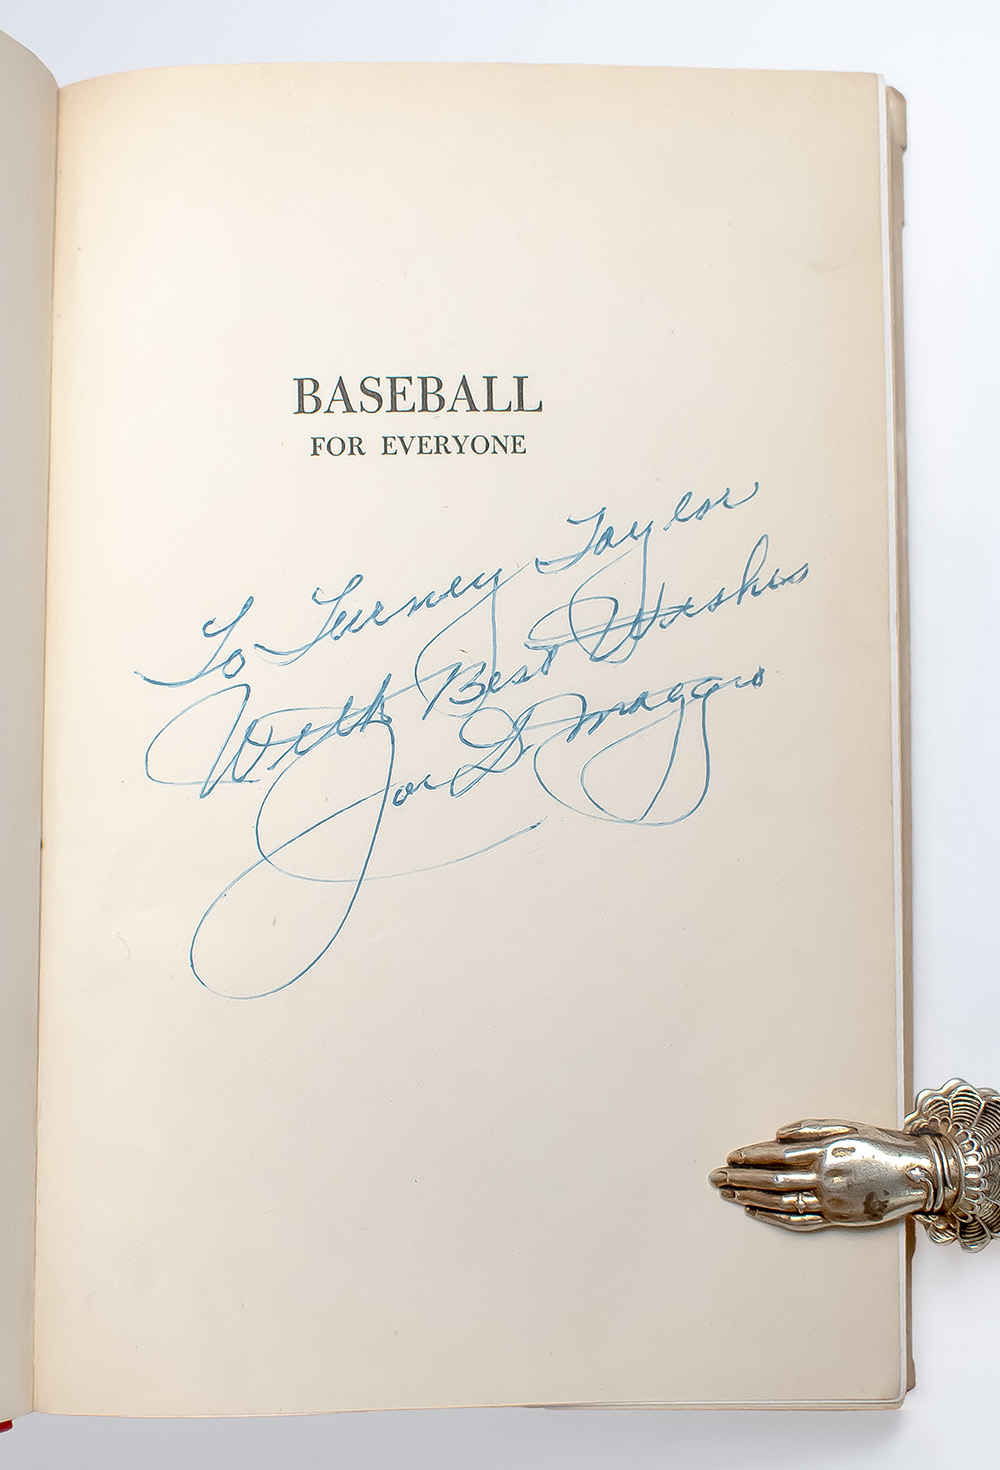 BASEBALL
FOR EVERYONE
To Turney Taylor
With Best Wishes
Joe DiMaggio